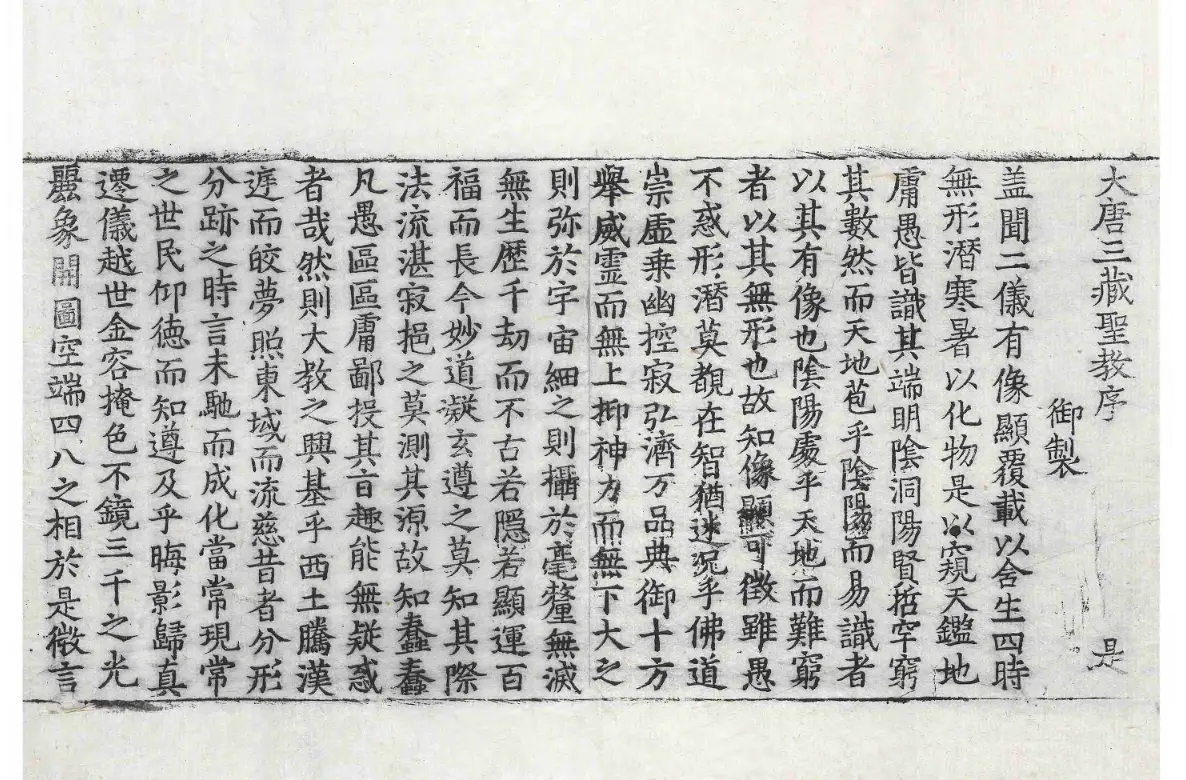 大唐三藏聖教序 是
御製
盖聞二儀有像顯覆載以含生四時
無形潛寒暑以化物是以窺天鑑地
庸愚皆識其端明陰洞陽賢哲罕窮
其數然而天地苞乎陰陽而易識者
以其有像也陰陽處乎天地而難窮
者以其無形也故知像顯可徵雖愚
不惑形潛莫覩在智猶迷況乎佛道
崇虛乗幽控寂弘濟万品典御十方
舉威靈而無上抑神力而無下大之
則弥於宇宙細之則攝於毫釐無滅
無生歷千劫而不古若隱若顯運百
福而長今妙道凝玄遵之莫知其際
法流湛寂挹之莫測其源故知蠢蠢
凡愚區區庸鄙投其旨趣能無疑惑
者哉然則大教之興基乎西土騰漢
遅而皎夢照東域而流慈昔者分形
分跡之時言未馳而成化當常現常
之世民仰德而知遵及乎晦影歸真
遷儀越世金容掩色不鏡三千之光
麗象開圖空端四八之相於是微言